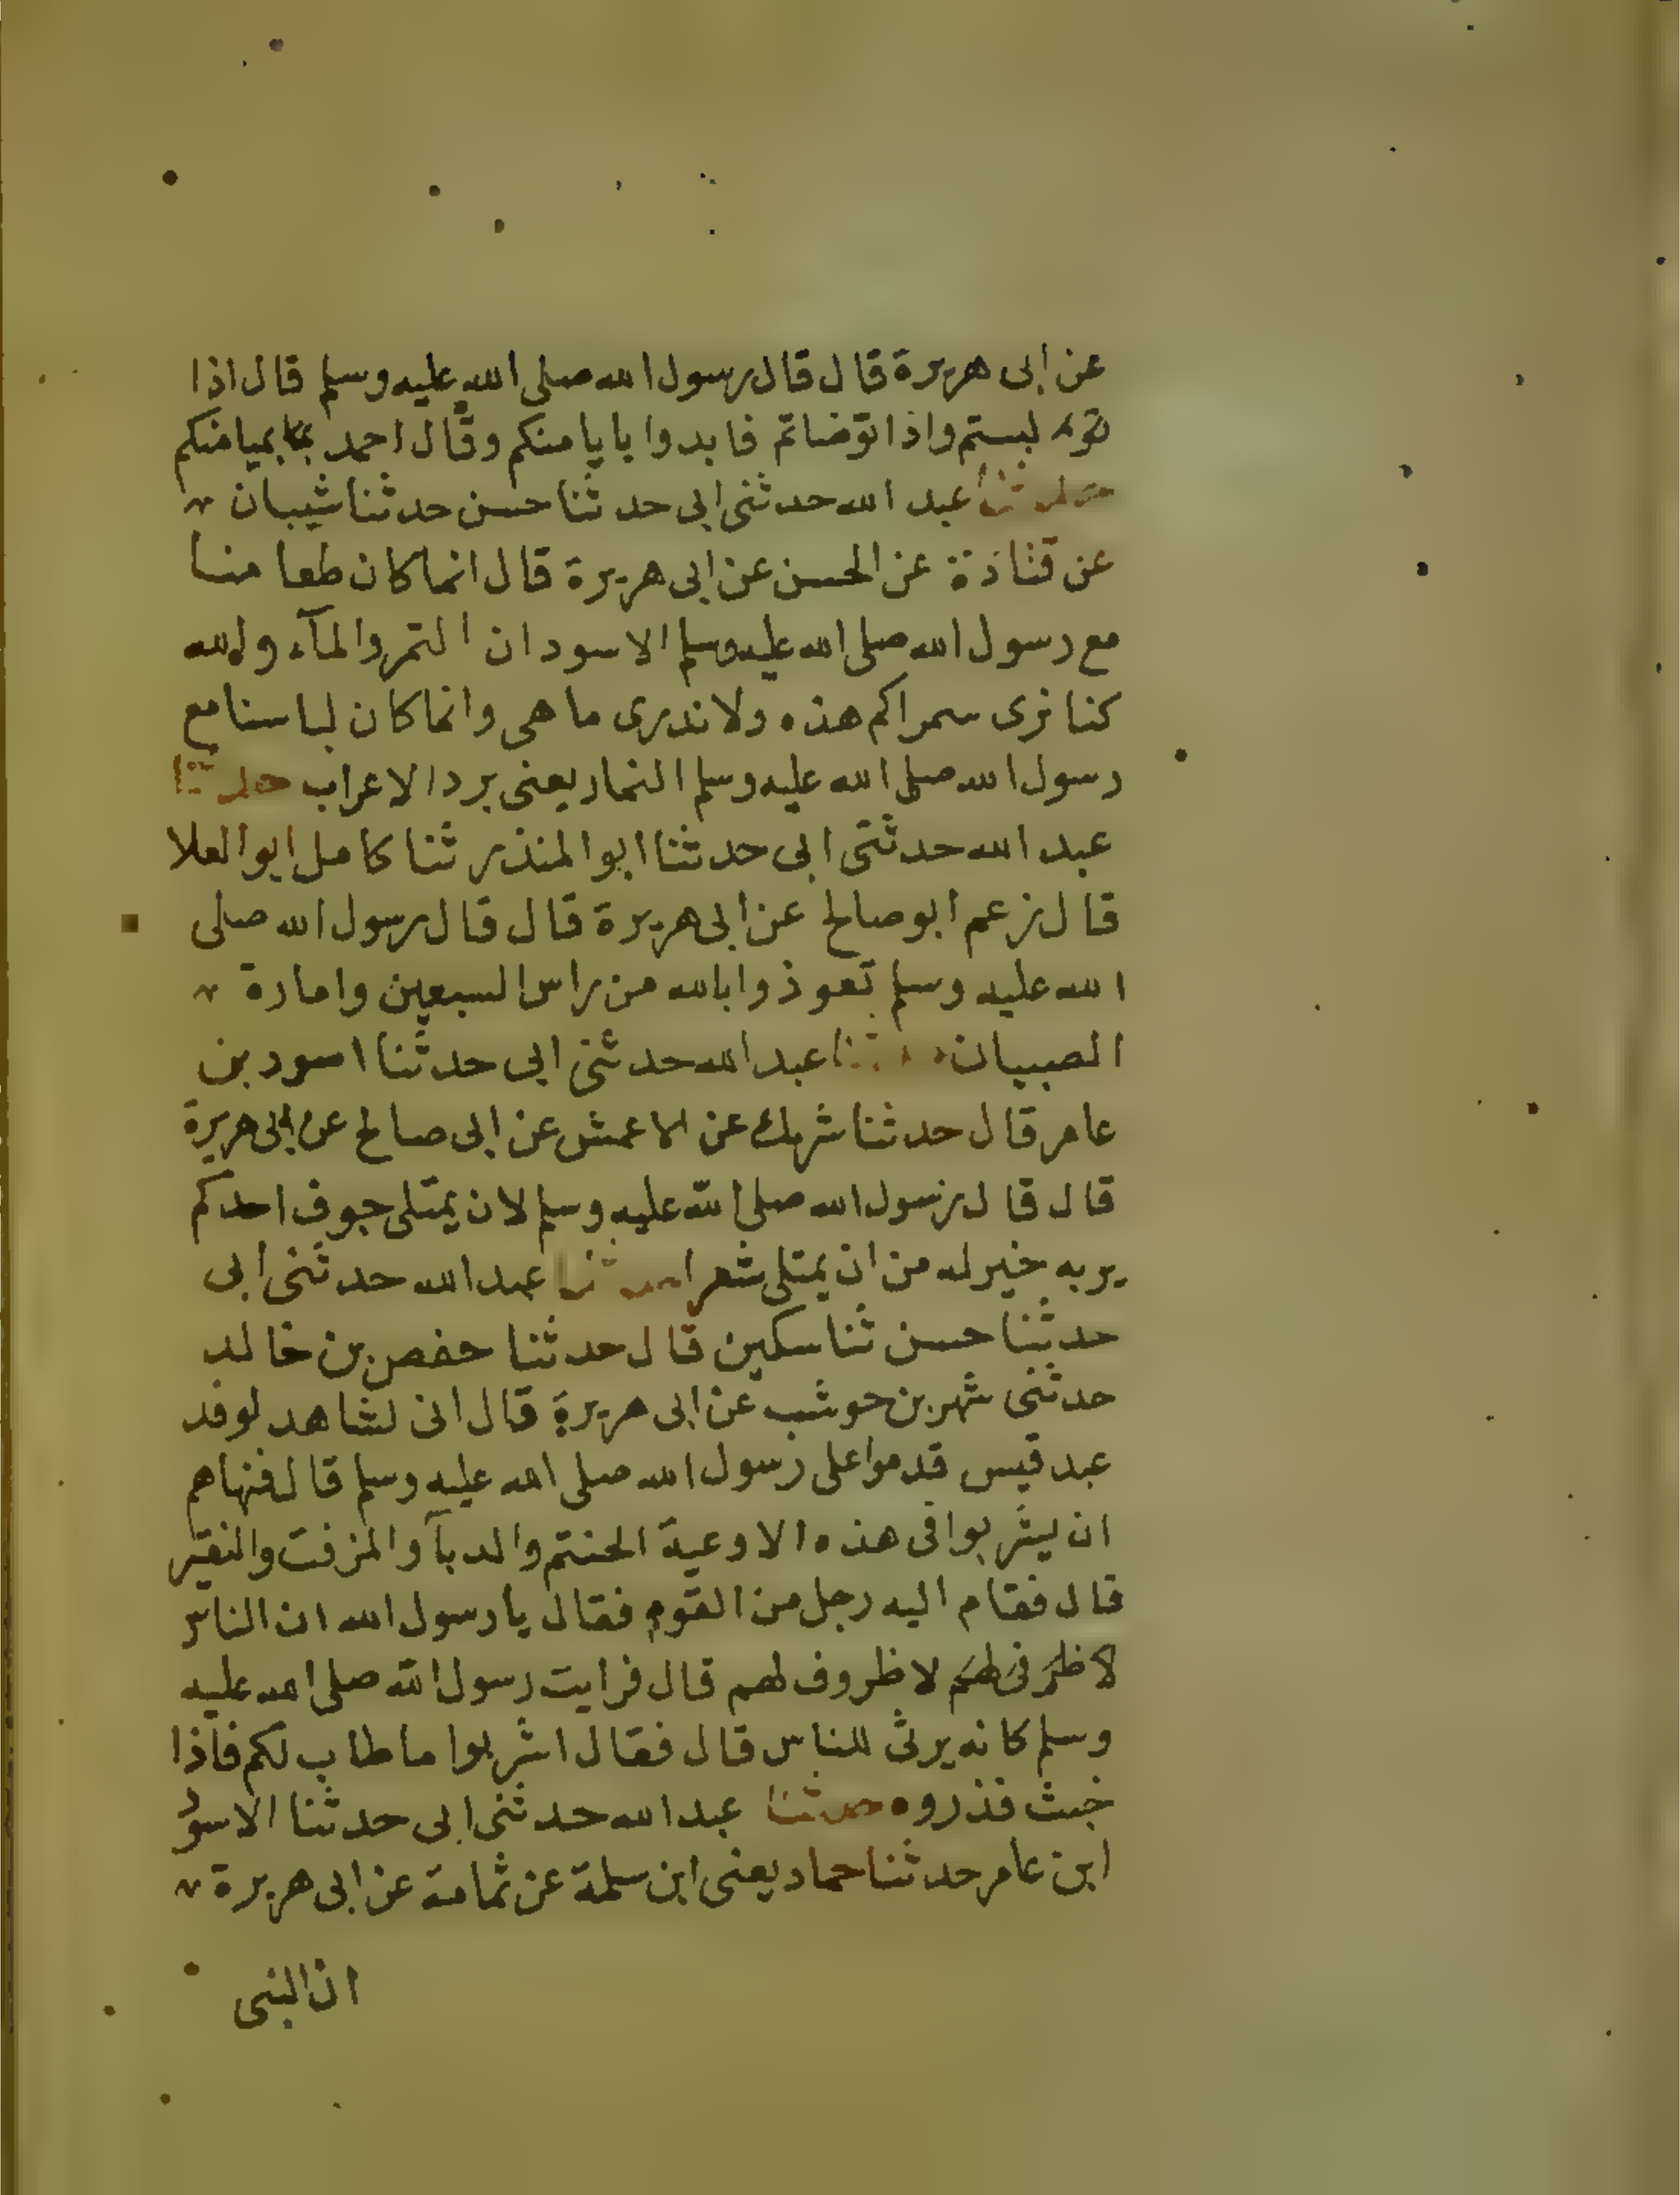 عن ابى هريرة قال قال رسول الله صلى الله عليه وسلم قال اذا
لبستم واذا توضاتم فابدوا بايامنكم وقال احمد بميامنكم
حدثنا عبد الله حدثنى ابى حدثنا حسن حدثنا شيبان
عن قتادة عن الحسن عن ابى هريرة قال انما كان طعامنا
مع رسول الله صلى الله عليه وسلم الاسودان التمر والمآء والله
كنا نرى سمراكم هذه ولا ندرى ما هى وانما كان لباسنا مع
رسول الله صلى الله عليه وسلم النمار يعنى برد الاعراب حدثنا
عبد الله حدثنى ابى حدثنا ابو المنذر ثنا كامل ابو العلا
قال زعم ابو صالح عن ابى هريرة قال قال رسول الله صلى
الله عليه وسلم تعوذوا بالله من راس السبعين وامارة
الصبيان حدثنا عبد الله حدثنى ابى حدثنا اسود بن
عامر قال حدثنا شريك عن الاعمش عن ابى صالح عن ابى هريرة
قال قال رسول الله صلى الله عليه وسلم لان يمتلى جوف احدكم
يربه خير له من ان يمتلى شعرا حدثنا عبد الله حدثنى ابى
حدثنا حسن ثنا سكين قال حدثنا حفص بن خالد
حدثنى شهر بن حوشب عن ابى هريرة قال انى لشاهد لوفد
عبد قيس قدموا على رسول الله صلى الله عليه وسلم قال فنهاهم
ان يشربوا فى هذه الاوعية الحنتم والدبآ والمزفت والنقير
قال فقام اليه رجل من القوم فقال يا رسول الله ان الناس
لا ظروف لهم قال فرايت رسول الله صلى الله عليه
وسلم كانه يرثى للناس قال فقال اشربوا ما طاب لكم فاذا
خبث فذروه حدثنا عبد الله حدثنى ابى حدثنا الاسود
ابن عامر حدثنا حماد يعنى ابن سلمة عن ثمامة عن ابى هريرة
ان النبى